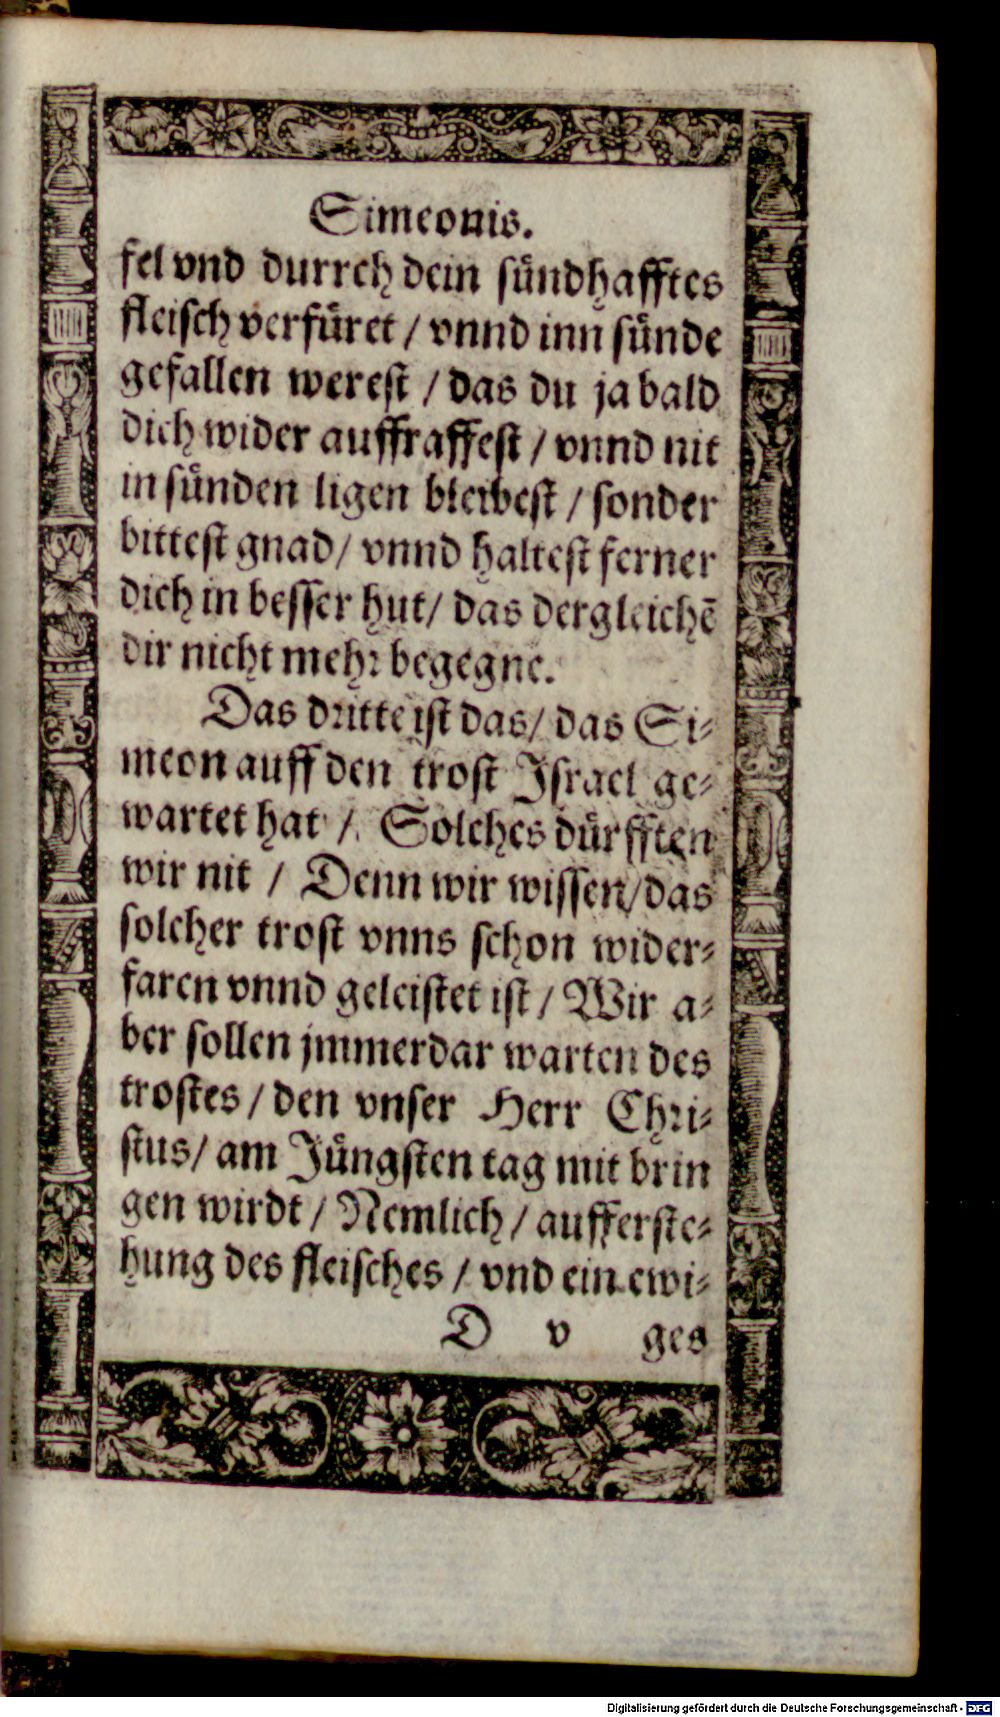 Simeonis.
fel vnd durrch dein suͤndhafftes
fleisch verfuͤret / vnnd inn suͤnde
gefallen werest / das du ja bald
dich wider auffraffest / vnnd nit
in suͤnden ligen bleibest / sonder
bittest gnad / vnnd haltest ferner
dich in besser hut / das dergleichē
dir nicht mehr begegne.
Das dritte ist das / das Si⸗
meon auff den trost Israel ge⸗
wartet hat / Solches duͤrfften
wir nit / Denn wir wissen / das
solcher trost vnns schon wider⸗
faren vnnd geleistet ist / Wir a⸗
ber sollen jmmerdar warten des
trostes / den vnser Herr Chri⸗
stus / am Juͤngsten tag mit brin
gen wirdt / Nemlich / aufferste⸗
hung des fleisches / vnd ein ewi⸗
D v ges
Digitalisierung gefördert durch die Deutsche Forschungsgemeinschaft - DFG